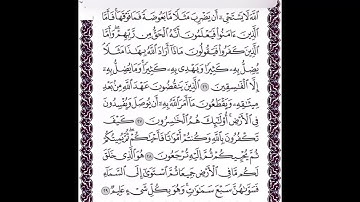 اللَّهَ لَا يَسْتَحْيِۦٓ أَن يَضْرِبَ مَثَلًا مَّا بَعُوضَةً فَمَا فَوْقَهَا فَأَمَّا
الَّذِينَ ءَامَنُوا فَيَعْلَمُونَ أَنَّهُ الْحَقُّ مِن رَّبِّهِمْ وَأَمَّا
الَّذِينَ كَفَرُوا فَيَقُولُونَ مَاذَا أَرَادَ اللَّهُ بِهَٰذَا مَثَلًا
يُضِلُّ بِهِۦ كَثِيرًا وَيَهْدِي بِهِۦ كَثِيرًا وَمَا يُضِلُّ بِهِۦٓ
إِلَّا الْفَٰسِقِينَ ٢٦ الَّذِينَ يَنقُضُونَ عَهْدَ اللَّهِ مِنۢ بَعْدِ
مِيثَٰقِهِۦ وَيَقْطَعُونَ مَا أَمَرَ اللَّهُ بِهِۦٓ أَن يُوصَلَ وَيُفْسِدُونَ
فِي الْأَرْضِ أُولَٰئِكَ هُمُ الْخَٰسِرُونَ ٢٧ كَيْفَ
تَكْفُرُونَ بِاللَّهِ وَكُنتُمْ أَمْوَٰتًا فَأَحْيَٰكُمْ ثُمَّ يُمِيتُكُمْ
ثُمَّ يُحْيِيكُمْ ثُمَّ إِلَيْهِ تُرْجَعُونَ ٢٨ هُوَ الَّذِي خَلَقَ
لَكُم مَّا فِي الْأَرْضِ جَمِيعًا ثُمَّ اسْتَوَىٰٓ إِلَى السَّمَاءِ
فَسَوَّىٰهُنَّ سَبْعَ سَمَٰوَٰتٍ وَهُوَ بِكُلِّ شَيْءٍ عَلِيمٌ ٢٩